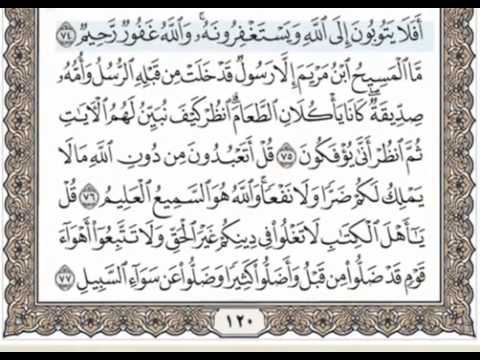 أَفَلَا يَتُوبُونَ إِلَى اللَّهِ وَيَسْتَغْفِرُونَهُ ۚ وَاللَّهُ غَفُورٌ رَّحِيمٌ ٧٤
مَّا الْمَسِيحُ ابْنُ مَرْيَمَ إِلَّا رَسُولٌ قَدْ خَلَتْ مِن قَبْلِهِ الرُّسُلُ وَأُمُّهُ
صِدِّيقَةٌ ۖ كَانَا يَأْكُلَانِ الطَّعَامَ ۗ انظُرْ كَيْفَ نُبَيِّنُ لَهُمُ الْآيَاتِ
ثُمَّ انظُرْ أَنَّى يُؤْفَكُونَ ٧٥ قُلْ أَتَعْبُدُونَ مِن دُونِ اللَّهِ مَا لَا
يَمْلِكُ لَكُمْ ضَرًّا وَلَا نَفْعًا ۚ وَاللَّهُ هُوَ السَّمِيعُ الْعَلِيمُ ٧٦ قُلْ
يَا أَهْلَ الْكِتَابِ لَا تَغْلُوا فِي دِينِكُمْ غَيْرَ الْحَقِّ وَلَا تَتَّبِعُوا أَهْوَاءَ
قَوْمٍ قَدْ ضَلُّوا مِن قَبْلُ وَأَضَلُّوا كَثِيرًا وَضَلُّوا عَن سَوَاءِ السَّبِيلِ ٧٧
١٢٠